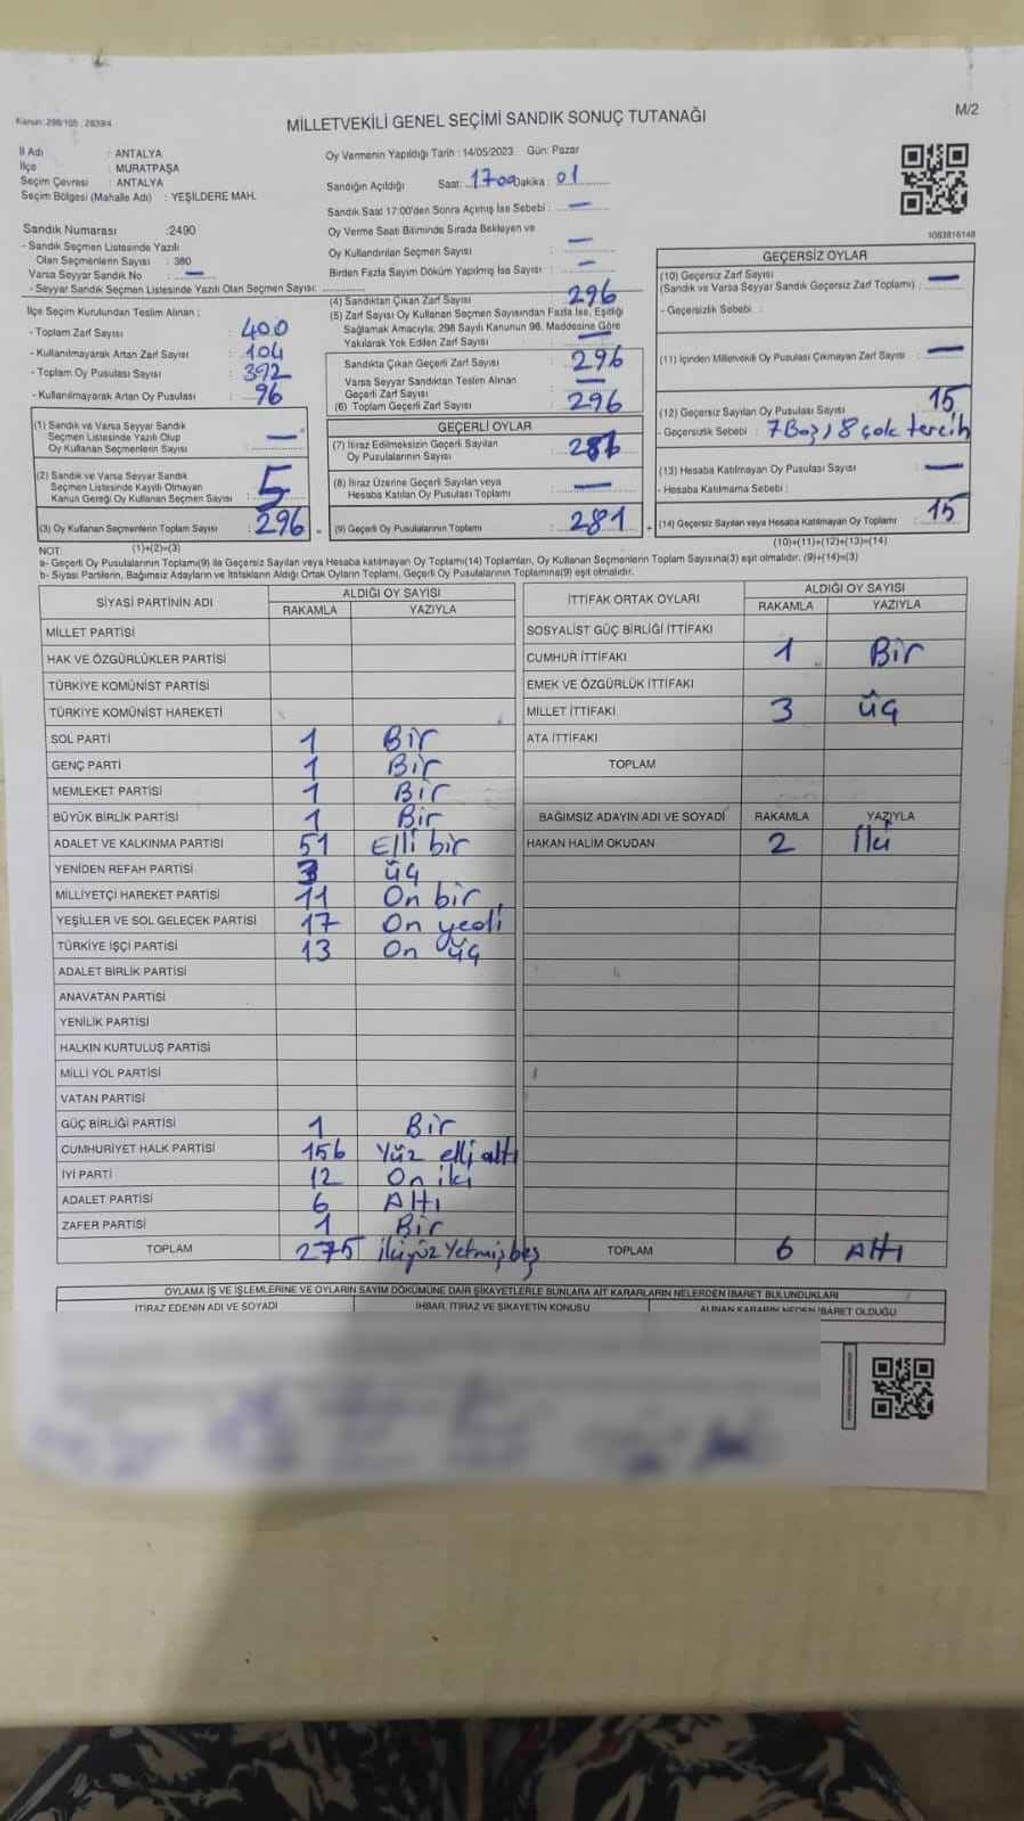 Kanun: 298/105, 2839/4
MİLLETVEKİLİ GENEL SEÇİMİ SANDIK SONUÇ TUTANAĞI
M/2
İl Adı : ANTALYA
İlçe : MURATPAŞA
Seçim Çevresi : ANTALYA
Seçim Bölgesi (Mahalle Adı) : YEŞİLDERE MAH.
Sandık Numarası :2490
- Sandık Seçmen Listesinde Yazılı
Olan Seçmenlerin Sayısı : 380
Varsa Seyyar Sandık No : —
- Seyyar Sandık Seçmen Listesinde Yazılı Olan Seçmen Sayısı:
Oy Vermenin Yapıldığı Tarih : 14/05/2023 Gün: Pazar
Sandığın Açıldığı Saat: 17:00 Dakika : 01
Sandık Saat 17:00'den Sonra Açılmış İse Sebebi : —
Oy Verme Saati Bitiminde Sırada Bekleyen ve
Oy Kullandırılan Seçmen Sayısı —
Birden Fazla Sayım Döküm Yapılmış İse Sayısı : —
1083816148
İlçe Seçim Kurulundan Teslim Alınan ;
- Toplam Zarf Sayısı : 400
- Kullanılmayarak Artan Zarf Sayısı : 104
- Toplam Oy Pusulası Sayısı : 392
- Kullanılmayarak Artan Oy Pusulası : 96
(1) Sandık ve Varsa Seyyar Sandık
Seçmen Listesinde Yazılı Olup
Oy Kullanan Seçmenlerin Sayısı : —
(2) Sandık ve Varsa Seyyar Sandık
Seçmen Listesinde Kayıtlı Olmayan
Kanun Gereği Oy Kullanan Seçmen Sayısı : 5
(3) Oy Kullanan Seçmenlerin Toplam Sayısı : 296
(1)+(2)=(3)
(4) Sandıktan Çıkan Zarf Sayısı : 296
(5) Zarf Sayısı Oy Kullanan Seçmen Sayısından Fazla İse, Eşitliği
Sağlamak Amacıyla, 298 Sayılı Kanunun 98. Maddesine Göre
Yakılarak Yok Edilen Zarf Sayısı : —
Sandıkta Çıkan Geçerli Zarf Sayısı : 296
Varsa Seyyar Sandıktan Teslim Alınan
Geçerli Zarf Sayısı : —
(6) Toplam Geçerli Zarf Sayısı : 296
GEÇERLİ OYLAR
(7) İtiraz Edilmeksizin Geçerli Sayılan
Oy Pusulalarının Sayısı
(8) İtiraz Üzerine Geçerli Sayılan veya
Hesaba Katılan Oy Pusulası Toplamı : —
(9) Geçerli Oy Pusulalarının Toplamı : 281
GEÇERSİZ OYLAR
(10) Geçersiz Zarf Sayısı
(Sandık ve Varsa Seyyar Sandık Geçersiz Zarf Toplamı) : —
- Geçersizlik Sebebi :
(11) İçinden Milletvekili Oy Pusulası Çıkmayan Zarf Sayısı : —
(12) Geçersiz Sayılan Oy Pusulası Sayısı : 15
- Geçersizlik Sebebi : 7 Boş, 8 çok tercih
(13) Hesaba Katılmayan Oy Pusulası Sayısı : —
- Hesaba Katılmama Sebebi :
(14) Geçersiz Sayılan veya Hesaba Katılmayan Oy Toplamı : 15
(10)+(11)+(12)+(13)=(14)
NOT:
a- Geçerli Oy Pusulalarının Toplamı(9) ile Geçersiz Sayılan veya Hesaba katılmayan Oy Toplamı(14) Toplamları, Oy Kullanan Seçmenlerin Toplam Sayısına(3) eşit olmalıdır. (9)+(14)=(3)
b- Siyasi Partilerin, Bağımsız Adayların ve İttifakların Aldığı Ortak Oyların Toplamı, Geçerli Oy Pusulalarının Toplamına(9) eşit olmalıdır.
SİYASİ PARTİNİN ADI ALDIĞI OY SAYISI
RAKAMLA YAZIYLA
MİLLET PARTİSİ
HAK VE ÖZGÜRLÜKLER PARTİSİ
TÜRKİYE KOMÜNİST PARTİSİ
TÜRKİYE KOMÜNİST HAREKETİ
SOL PARTİ 1 Bir
GENÇ PARTİ 1 Bir
MEMLEKET PARTİSİ 1 Bir
BÜYÜK BİRLİK PARTİSİ 1 Bir
ADALET VE KALKINMA PARTİSİ 51 Elli bir
YENİDEN REFAH PARTİSİ 3 üç
MİLLİYETÇİ HAREKET PARTİSİ 11 On bir
YEŞİLLER VE SOL GELECEK PARTİSİ 17 On yedi
TÜRKİYE İŞÇİ PARTİSİ 13 On üç
ADALET BİRLİK PARTİSİ
ANAVATAN PARTİSİ
YENİLİK PARTİSİ
HALKIN KURTULUŞ PARTİSİ
MİLLİ YOL PARTİSİ
VATAN PARTİSİ
GÜÇ BİRLİĞİ PARTİSİ 1 Bir
CUMHURİYET HALK PARTİSİ 156 Yüz elli altı
İYİ PARTİ 12 On iki
ADALET PARTİSİ 6 Altı
ZAFER PARTİSİ 1 Bir
TOPLAM 275 İkiyüz Yetmiş beş
İTTİFAK ORTAK OYLARI ALDIĞI OY SAYISI
RAKAMLA YAZIYLA
SOSYALİST GÜÇ BİRLİĞİ İTTİFAKI
CUMHUR İTTİFAKI 1 Bir
EMEK VE ÖZGÜRLÜK İTTİFAKI
MİLLET İTTİFAKI 3 üç
ATA İTTİFAKI
TOPLAM
BAĞIMSIZ ADAYIN ADI VE SOYADI RAKAMLA YAZIYLA
HAKAN HALİM OKUDAN 2 İki
TOPLAM 6 Altı
OYLAMA İŞ VE İŞLEMLERİNE VE OYLARIN SAYIM DÖKÜMÜNE DAİR ŞİKAYETLERLE BUNLARA AİT KARARLARIN NELERDEN İBARET BULUNDUKLARI
İTİRAZ EDENİN ADI VE SOYADI İHBAR, İTİRAZ VE ŞİKAYETİN KONUSU ALINAN KARARIN NEDEN İBARET OLDUĞU